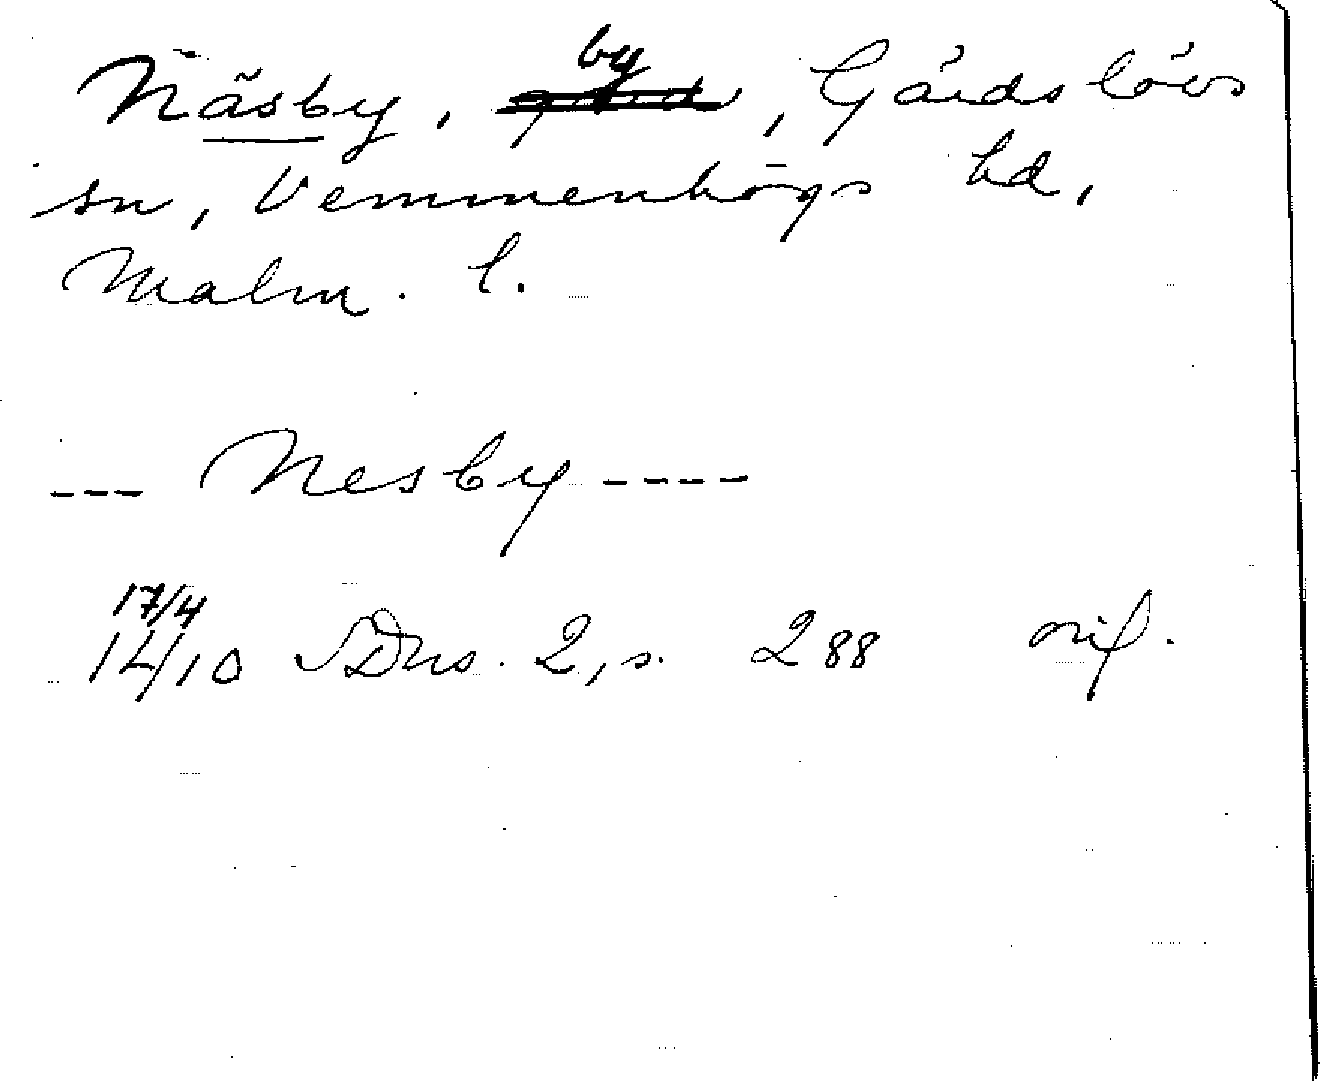 by
Näsby, gård, Gärdslövs
sn, Vemmenhögs hd,
Malm. l.
--- Nesby ----
17/4
14/10 SDns. 2, s. 288 orig.